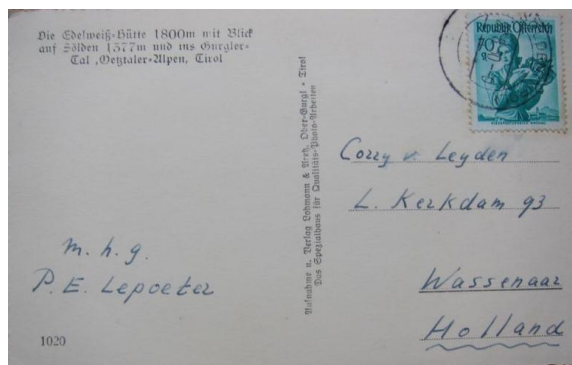 Die Edelweiß-Hütte 1800m mit Blick
auf Sölden 1377m und ins Gurgler-
Tal, Oetztaler-Alpen, Tirol
Aufnahme u. Verlag Lohmann & Ober-Gurgl · Tirol
Das Spezialhaus für Qualitäts-Photo-Arbeiten
Republik Österreich
Corry v. Leyden
L. Kerkdam 93
Wassenaar
Holland
m. h. g.
P. E. Lepoeter
1020